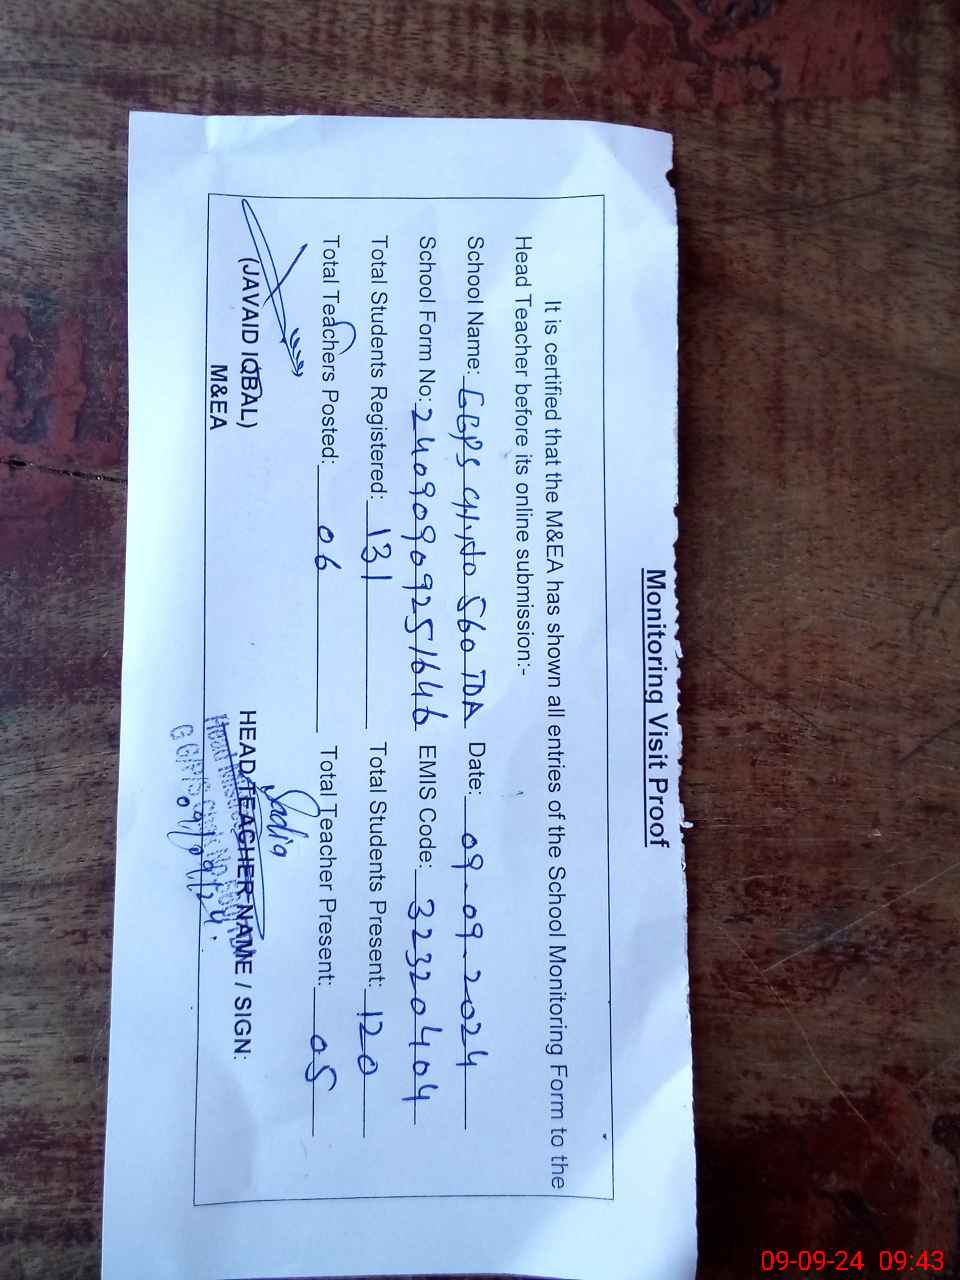 Monitoring Visit Proof
It is certified that the M&EA has shown all entries of the School Monitoring Form to the
Head Teacher before its online submission:-
School Name: GGPS 560 TDA Date: 09-09-2024
School Form No: 24090909251646 EMIS Code: 32320404
Total Students Registered: 131 Total Students Present: 120
Total Teachers Posted: 06 Total Teacher Present: 05
Sadia
(JAVAID IQBAL) HEAD TEACHER NAME / SIGN:
M&EA
09/09/24
09-09-24 09:43